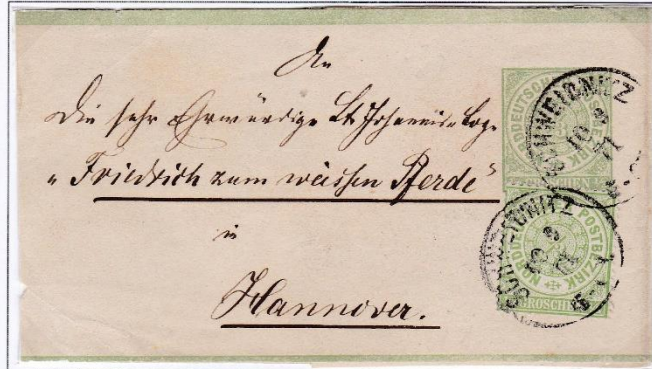 An
die sehr Ehrwürdige St. Johannis-Loge
„Friedrich zum weissen Pferde"
in
Hannover.
NORDDEUTSCHER POSTBEZIRK
GROSCHEN
SCHWEIDNITZ
10 9 71
NORDDEUTSCHER POSTBEZIRK
GROSCHEN
SCHWEIDNITZ
10 9 71